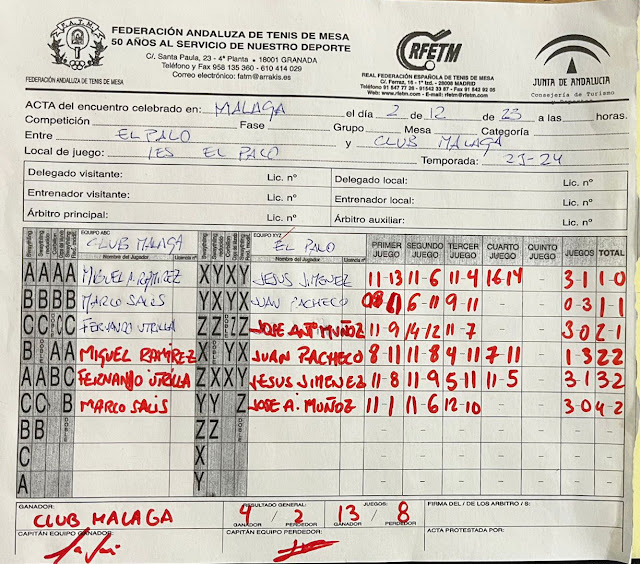 FEDERACIÓN ANDALUZA DE TENIS DE MESA
50 AÑOS AL SERVICIO DE NUESTRO DEPORTE
C/. Santa Paula, 23 - 4ª Planta • 18001 GRANADA
Teléfono y Fax 958 135 360 - 610 414 029
Correo electrónico: fatm@arrakis.es
F.A.T.M.
FEDERACIÓN ANDALUZA DE TENIS DE MESA
RFETM
REAL FEDERACIÓN ESPAÑOLA DE TENIS DE MESA
C/. Ferraz, 16 - 1º izd. - 28008 MADRID
Teléfono 91 547 77 26 - 91542 33 87 - Fax 91 542 92 05
Web: www.rfetm.com - E-mail: rfetm@rfetm.com
JUNTA DE ANDALUCIA
Consejería de Turismo
ACTA del encuentro celebrado en: MALAGA el día 2 de 12 de 23 a las horas.
Competición Fase Grupo Mesa Categoría
Entre EL PALO y CLUB MALAGA
Local de juego: IES EL PALO Temporada: 23-24
Delegado visitante: Lic. nº Delegado local: Lic. nº
Entrenador visitante: Lic. nº Entrenador local: Lic. nº
Árbitro principal: Lic. nº Árbitro auxiliar: Lic. nº
EQUIPO ABC CLUB MALAGA EQUIPO XYZ EL PALO
Nombre del Jugador Licencia nº Nombre del Jugador Licencia nº PRIMER JUEGO SEGUNDO JUEGO TERCER JUEGO CUARTO JUEGO QUINTO JUEGO JUEGOS TOTAL
A A A A MIGUEL A. RAMIREZ X Y X Y JESUS JIMENEZ 11-13 11-6 11-4 16-14 - 3-1 1-0
B B B B MARCO SALIS Y X Y X JUAN PACHECO 6-11 9-11 - - 0-3 1-1
C C DOBLE C FERNANDO UTRILLA Z Z DOBLE Z JOSE ANTº MUÑOZ 11-9 14-12 11-7 - - 3-0 2-1
B DOBLE A A MIGUEL RAMIREZ X DOBLE Y X JUAN PACHECO 8-11 11-8 4-11 7-11 - 1-3 2-2
A A B C FERNANDO UTRILLA Z X X Y JESUS JIMENEZ 11-8 11-9 5-11 11-5 - 3-1 3-2
C C B MARCO SALIS Y Y Z JOSE A. MUÑOZ 11-1 11-6 12-10 - - 3-0 4-2
B B DOBLE Z Z DOBLE - - - - - - -
C X - - - - - - -
A Y - - - - - - -
GANADOR: CLUB MALAGA RESULTADO GENERAL: 4 GANADOR / 2 PERDEDOR JUEGOS: 13 GANADOR / 8 PERDEDOR FIRMA DEL / DE LOS ARBITRO / S:
CAPITÁN EQUIPO GANADOR: CAPITÁN EQUIPO PERDEDOR: ACTA PROTESTADA POR: